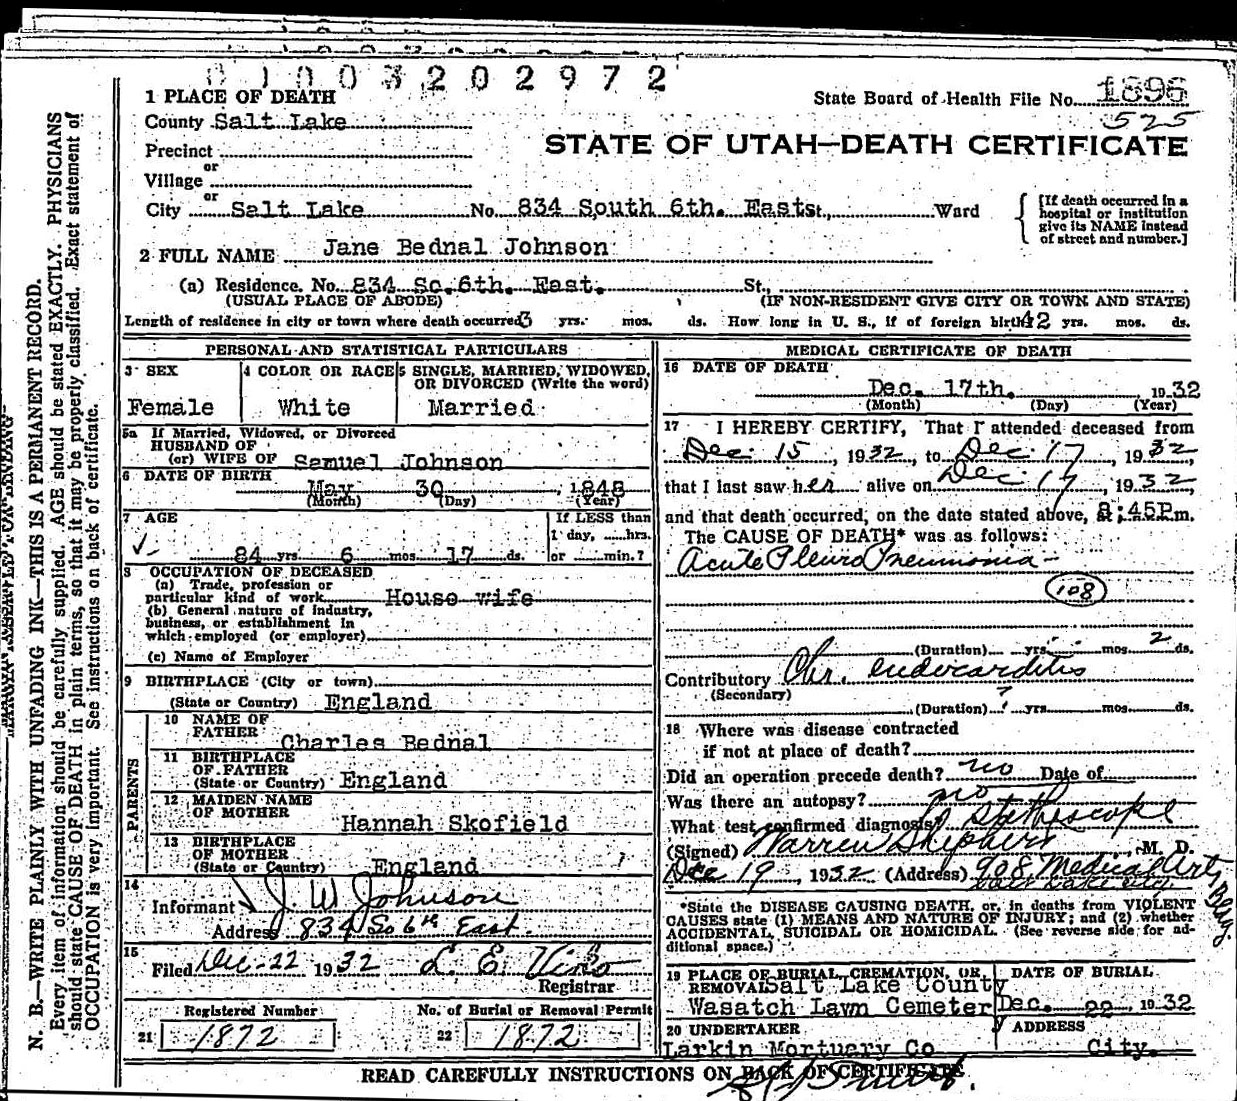 01003202972
1 PLACE OF DEATH
State Board of Health File No. 1896
County Salt Lake
525
STATE OF UTAH—DEATH CERTIFICATE
Precinct
or
Village
or
City Salt Lake No. 834 South 6th. East St., Ward
[If death occurred in a hospital or institution give its NAME instead of street and number.]
2 FULL NAME Jane Bednal Johnson
(a) Residence. No. 834 So. 6th. East. St.,
(USUAL PLACE OF ABODE) (IF NON-RESIDENT GIVE CITY OR TOWN AND STATE)
Length of residence in city or town where death occurred 3 yrs. mos. ds. How long in U. S., if of foreign birth 42 yrs. mos. ds.
PERSONAL AND STATISTICAL PARTICULARS
3 SEX
Female
4 COLOR OR RACE
White
5 SINGLE, MARRIED, WIDOWED,
OR DIVORCED (Write the word)
Married
5a If Married, Widowed, or Divorced
HUSBAND OF
(or) WIFE OF Samuel Johnson
6 DATE OF BIRTH
May 30, 1848
(Month) (Day) (Year)
7 AGE
84 yrs. 6 mos. 17 ds.
If LESS than
1 day, hrs.
or min.?
8 OCCUPATION OF DECEASED
(a) Trade, profession or
particular kind of work House wife
(b) General nature of industry,
business, or establishment in
which employed (or employer)
(c) Name of Employer
9 BIRTHPLACE (City or town)
(State or Country) England
PARENTS
10 NAME OF
FATHER Charles Bednal
11 BIRTHPLACE
OF FATHER
(State or Country) England
12 MAIDEN NAME
OF MOTHER
Hannah Skofield
13 BIRTHPLACE
OF MOTHER
(State or Country) England
14
Informant J. W. Johnson
Address 834 So 6th East
15
Filed Dec-22 1932 L. E.
Registrar
Registered Number
21 1872
No. of Burial or Removal Permit
22 1872
MEDICAL CERTIFICATE OF DEATH
16 DATE OF DEATH
Dec. 17th. 1932
(Month) (Day) (Year)
17 I HEREBY CERTIFY, That I attended deceased from
Dec. 15, 1932, to Dec. 17, 1932,
that I last saw her alive on Dec 17, 1932,
and that death occurred, on the date stated above, 8:45P.m.
The CAUSE OF DEATH* was as follows:
Acute Pleuro Pneumonia
108
(Duration) yrs. mos. 2 ds.
Contributory Chr. endocarditis
(Secondary)
(Duration) ? yrs. mos. ds.
18 Where was disease contracted
if not at place of death?
Did an operation precede death? no Date of
Was there an autopsy? no
What test confirmed diagnosis? Stethescope
(Signed) Warren Shepherd, M. D.
Dec 19, 1932 (Address) 908 Medical Arts Bldg.
Salt Lake City
*State the DISEASE CAUSING DEATH, or, in deaths from VIOLENT
CAUSES state (1) MEANS AND NATURE OF INJURY; and (2) whether
ACCIDENTAL, SUICIDAL OR HOMICIDAL. (See reverse side for ad-
ditional space.)
19 PLACE OF BURIAL, CREMATION, OR
REMOVAL Salt Lake County
Wasatch Lawn Cemetery
DATE OF BURIAL
Dec. 22, 1932
20 UNDERTAKER
Larkin Mortuary Co
ADDRESS
City.
READ CAREFULLY INSTRUCTIONS ON BACK OF CERTIFICATE.
N. B.—WRITE PLAINLY WITH UNFADING INK—THIS IS A PERMANENT RECORD.
Every item of information should be carefully supplied. AGE should be stated EXACTLY. PHYSICIANS
should state CAUSE OF DEATH in plain terms, so that it may be properly classified. Exact statement of
OCCUPATION is very important. See instructions on back of certificate.